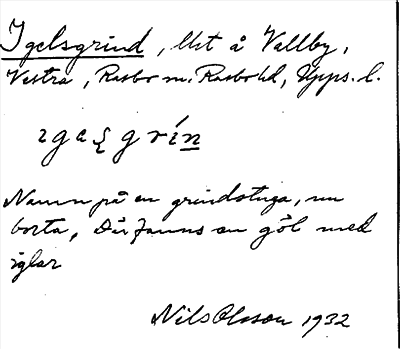 Igelsgrind, Ust å Vallby,
Västra, Rasbo sn. Rasbo hd, Upps. l.
ɪgəʃgrín
Namn på en grindstuga, nu
borta, Där fanns en göl med
iglar
Nils Olsson 1932